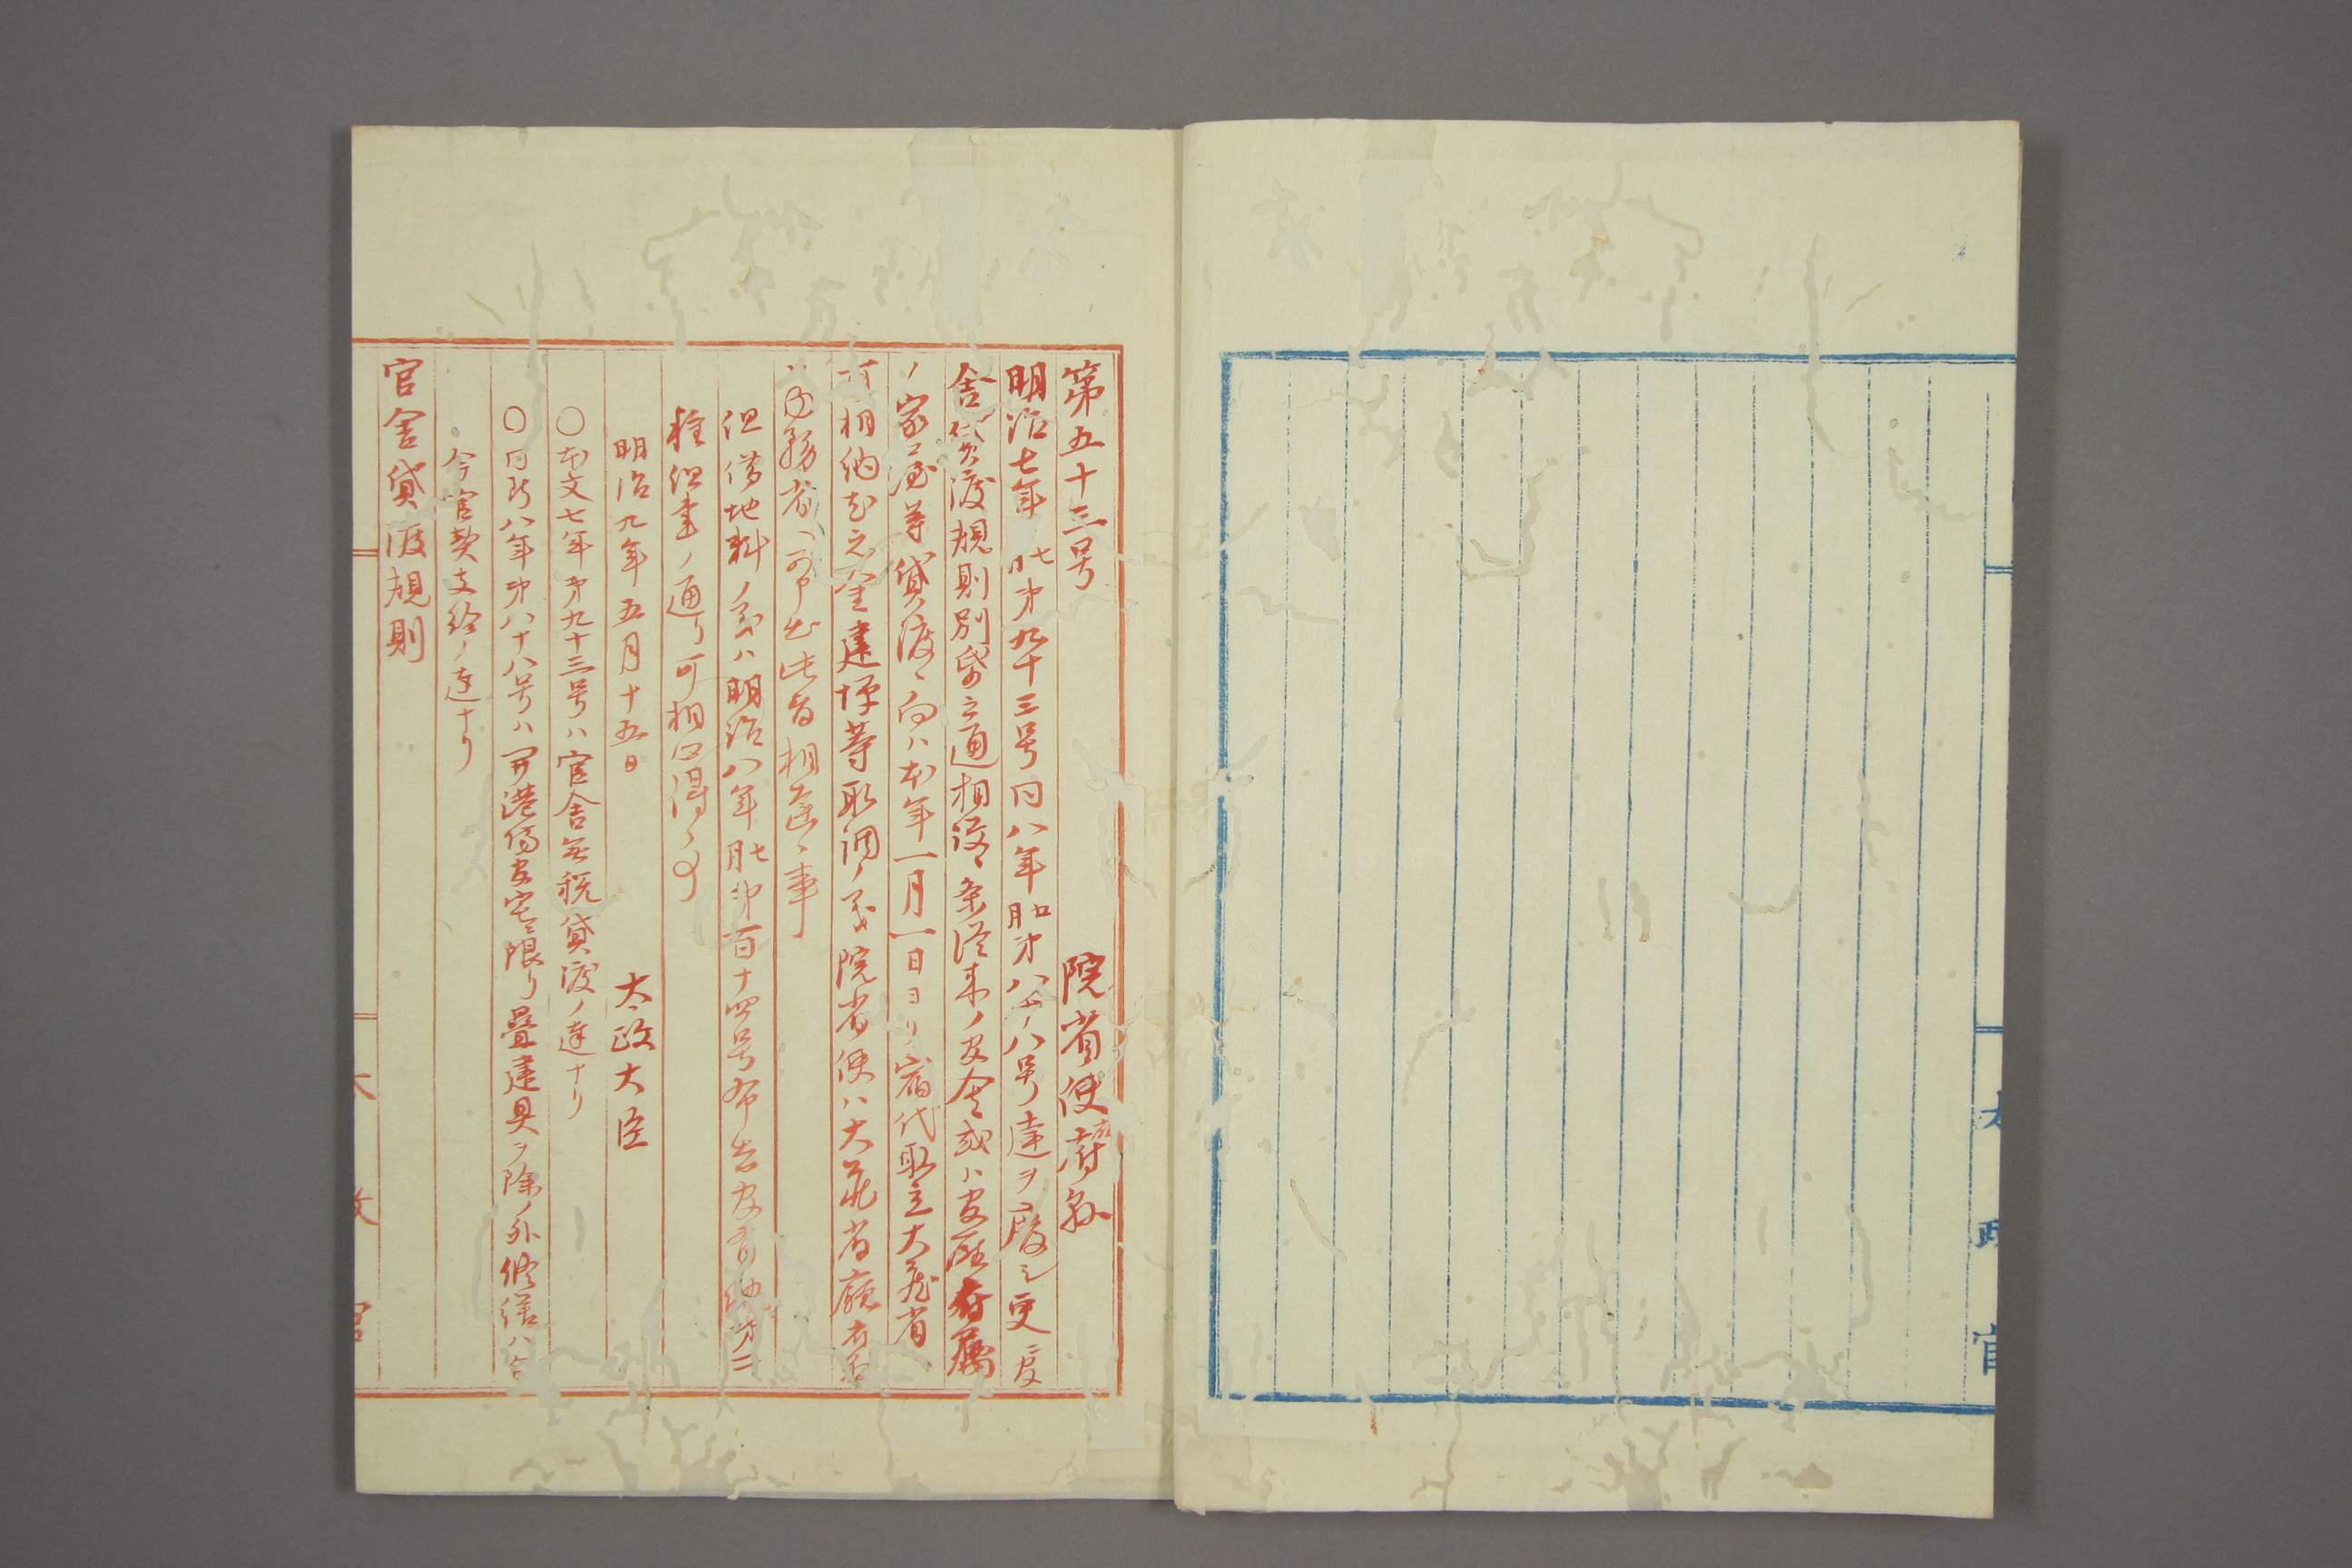 第五十三号
院省使府県
明治七年七月第九十三号同八年四月第八十八号達ヲ廃シ更ニ官
舎貸渡規則別紙之通相設ケ条従来ノ官舎或ハ官庁有属
ノ家屋等貸渡ニ向ハ本年一月一日ヨリ宿代取立大蔵省
可相納尤之金建坪等取調ノ義院省使ハ大蔵省庁府県
ハ内務省ヘ可申出此旨相達候事
但借地料ノ義ハ明治八年七月第百十四号布告官有地第二
種但書ノ通リ可相心得ノ事
明治九年五月十五日
太政大臣
○本文七年第九十三号ハ官舎無税貸渡ノ達ナリ
○同断八年第八十八号ハ開港場官宅ニ限リ畳建具ヲ除ノ外修繕ハ
今官費支給ノ達ナリ
官舎貸渡規則
太政官
太政官